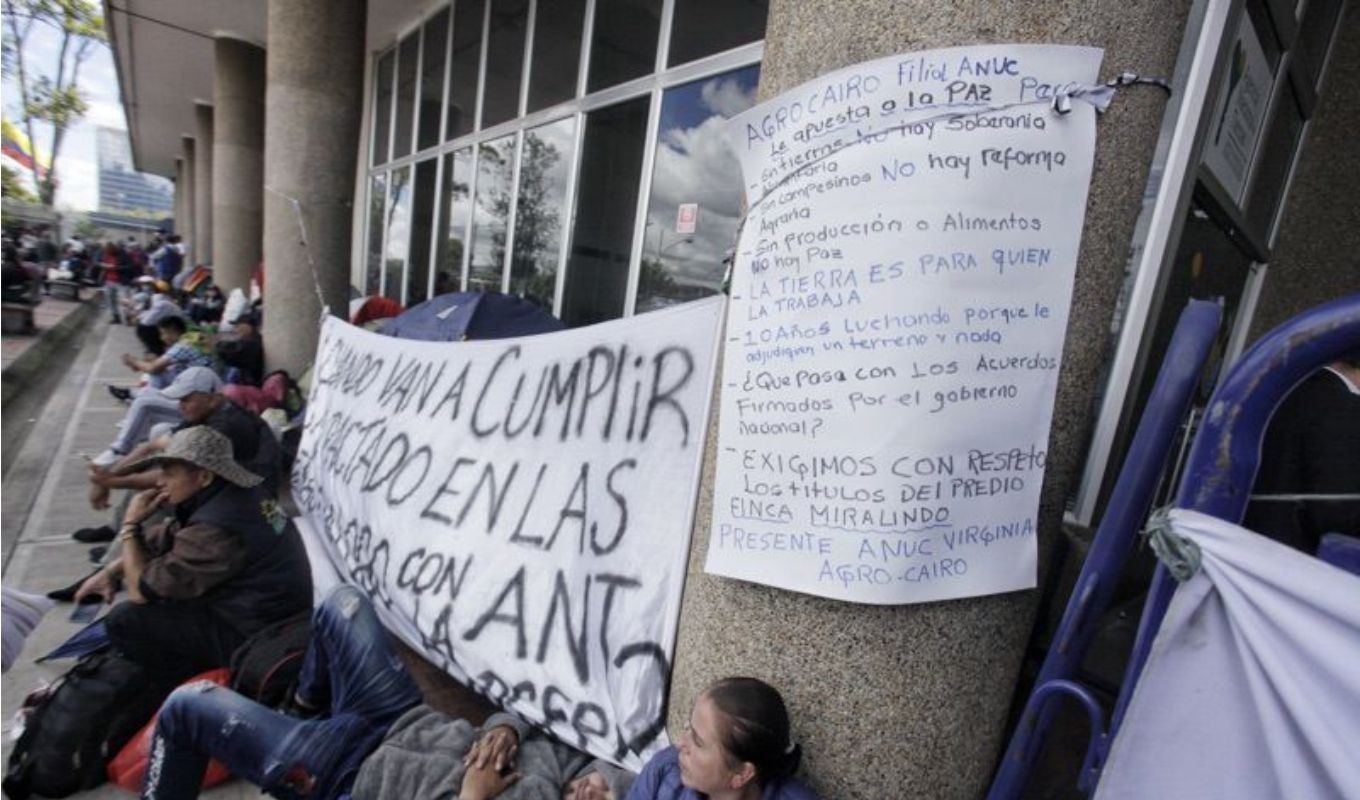 VAN A CUMPLIR
PACTADO EN LAS
CON ANT
LA
AGRO CAIRO Filial ANUC
Le apuesta a la PAZ Para
- Sin tierrra No hay Soberania
Alimentaria
- Sin campesinos NO hay reforma
Agraria
- Sin Producción o Alimentos
NO hay Paz
- LA TIERRA ES PARA QUIEN
LA TRABAJA
- 10 Años Luchando porque le
adjudiquen un terreno y nada
- ¿Que Pasa con Los Acuerdos
Firmados Por el gobierno
Nacional?
- EXIGIMOS CON RESPETO
Los titulos DEl PREDIO
FINCA MIRALINDO
PRESENTE ANUC VIRGINIA
AGRO-CAIRO